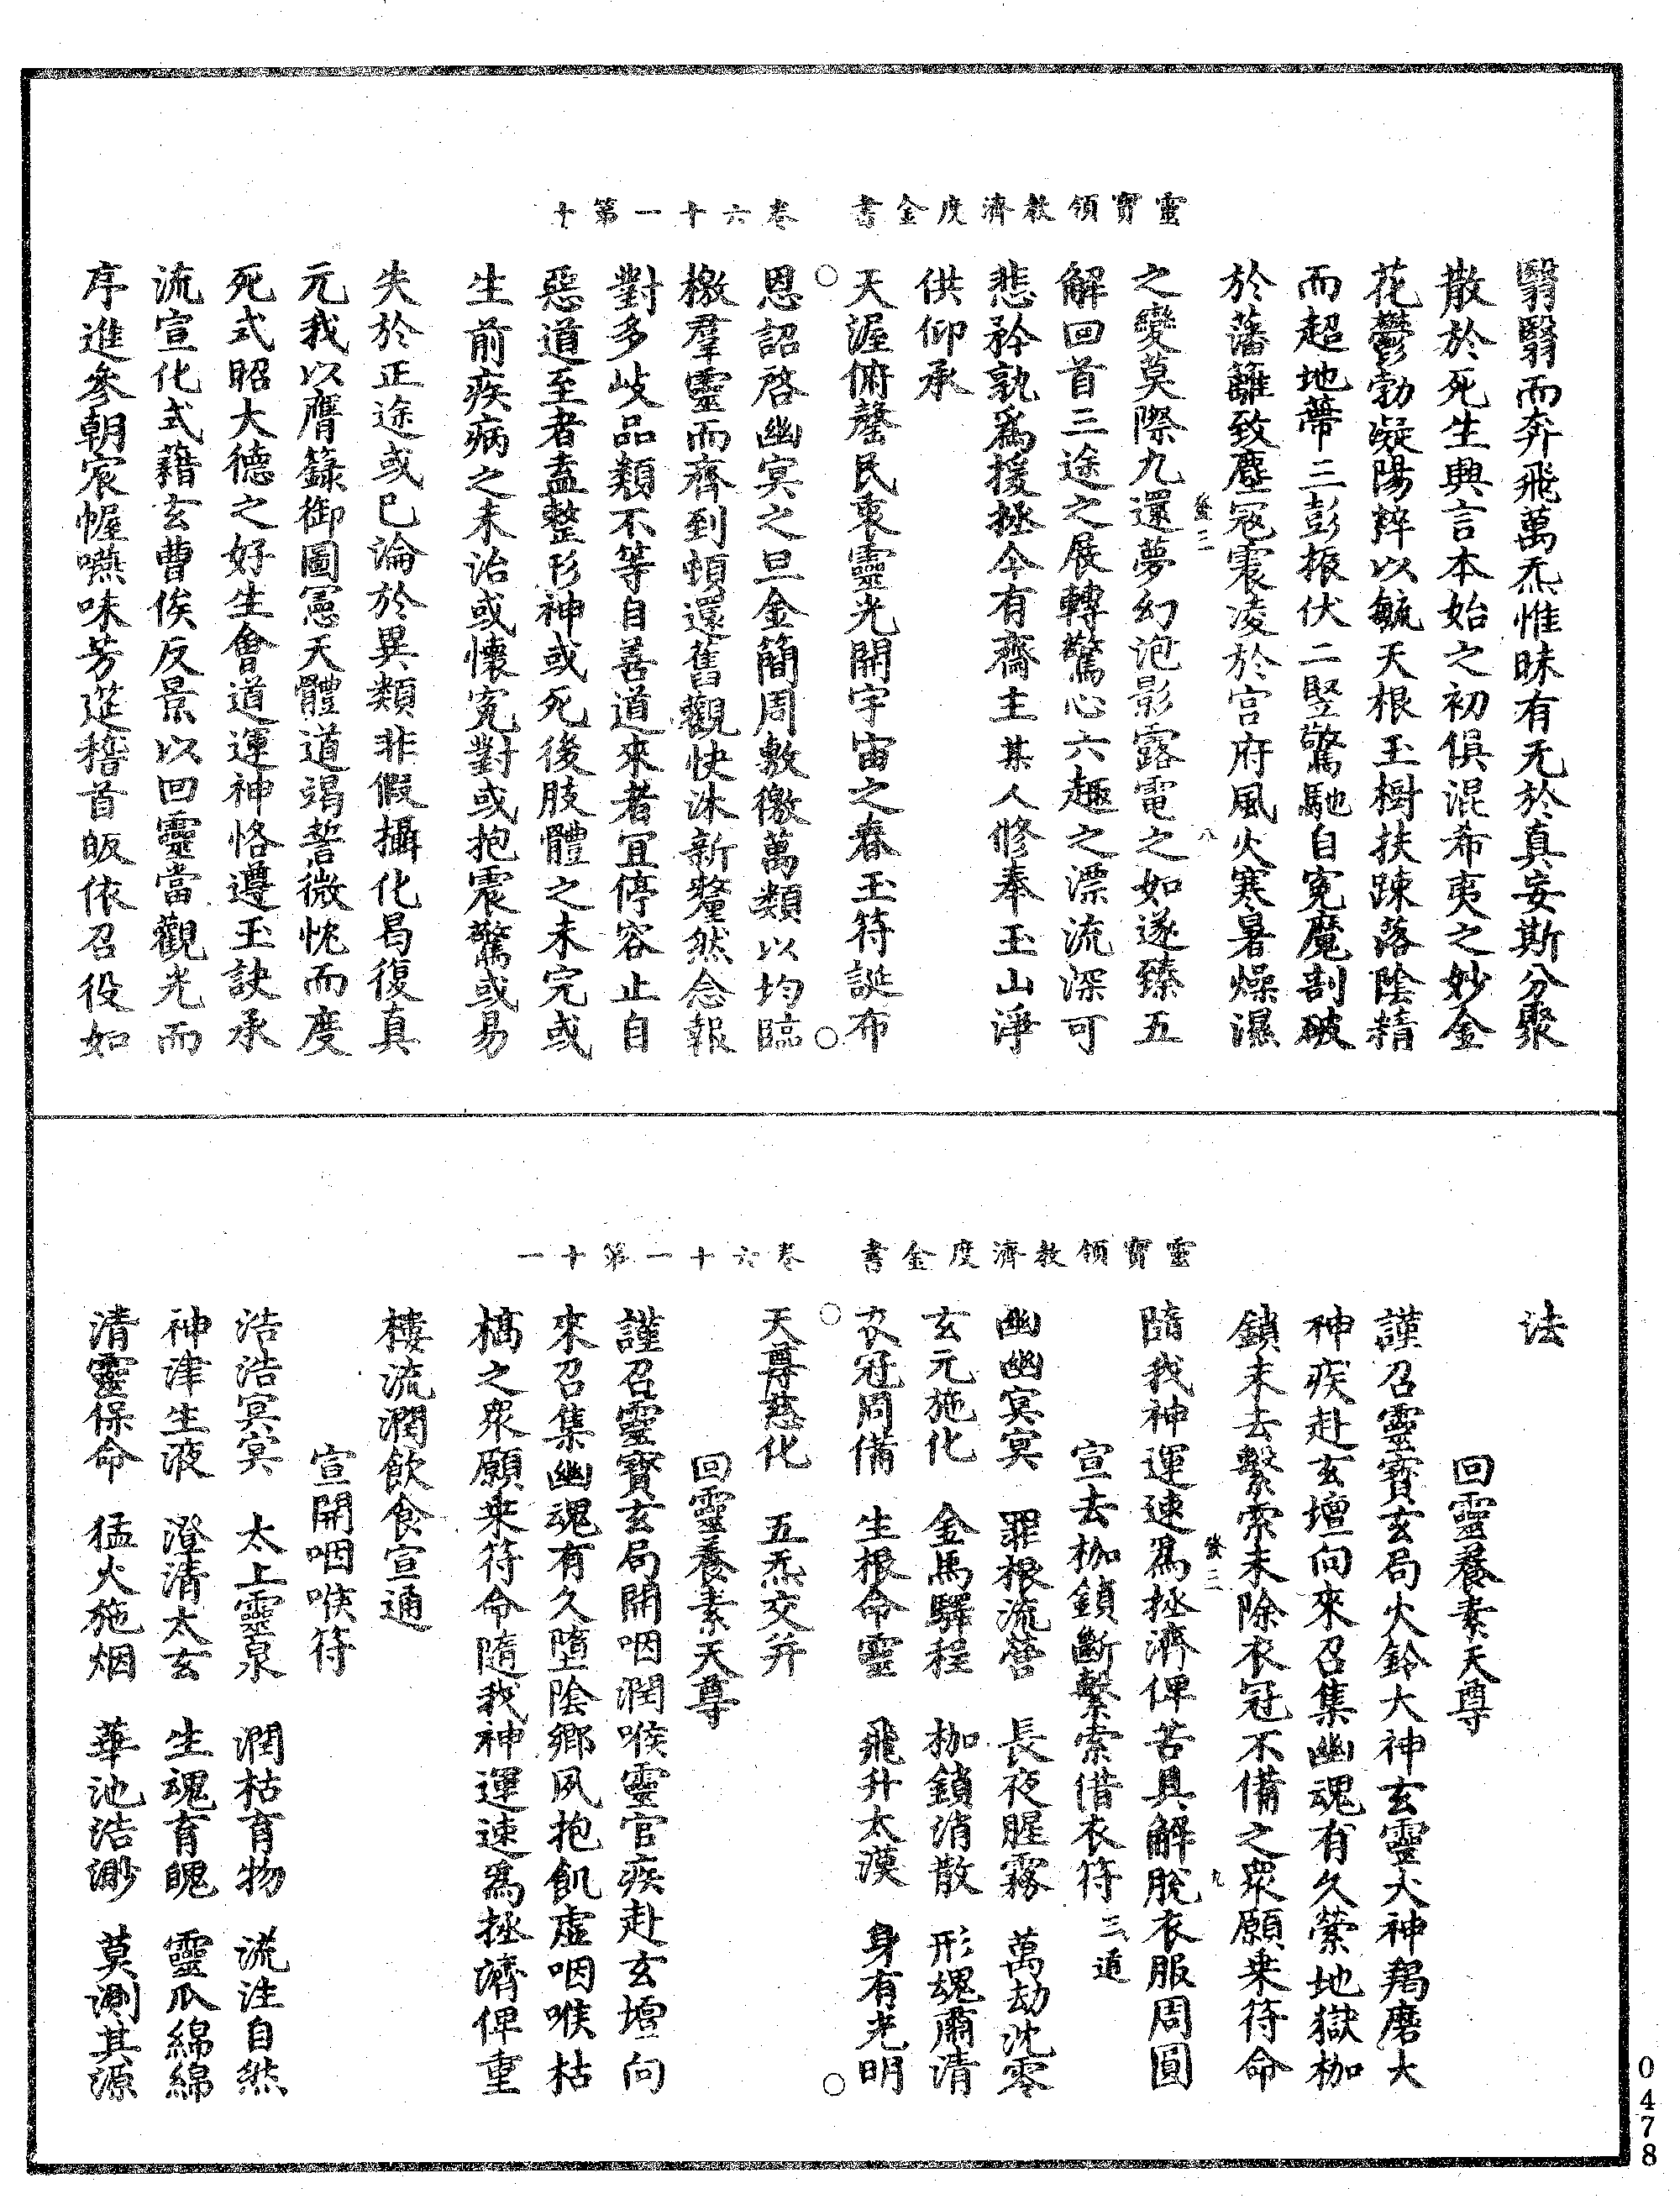 靈寶領教濟度金書　卷六十一第十
翳翳而奔飛萬炁惟昧有无於真妄斯分聚
散於死生興言本始之初俱混希夷之妙金
花鬱勃凝陽粹以毓天根玉樹扶踈落陰精
而超地蔕三彭振伏二竪驚馳自寃魔剖破
於藩籬致塵寇震凌於宫府風火寒暑燥濕
之變莫際九還夢幻泡影露電之如遂臻五
解回首三途之展轉驚心六趣之漂流深可
悲矜孰爲援拯今有齋主某人修奉玉山淨
供仰承
天渥俯罄民衷靈光開宇宙之春玉符誕布
恩詔啓幽冥之旦金簡周敷徼萬類以均臨
檄羣靈而齊到頓還舊觀快沐新釐然念報
對多岐品類不等自善道來者宜停容止自
惡道至者盍整形神或死後肢體之未完或
生前疾病之未治或懷寃對或抱震驚或易
失於正途或已淪於異類非假攝化曷復真
元我以膺籙御圖憲天體道竭誓微忱而度
死式昭大德之好生會道運神恪遵玉訣承
流宣化式藉玄曹俟反景以回靈當觀光而
序進參朝宸幄嚥味芳蓝稽首皈依召役如
癸三
八
靈寶領教濟度金書　卷六十一第十一
法
回靈養素天尊
謹召靈寶玄局火鈴大神玄靈大神羯磨大
神疾赴玄壇向來召集幽魂有久縈地獄枷
鎖未去繫索未除衣冠不備之眾願来符命
隨我神運速爲拯濟俾苦具解脫衣服周圓
宣去枷鎖斷繫索借衣符三道
幽幽冥冥　罪根流營　長夜腥霧　萬劫沈零
玄元施化　金馬驛程　枷鎖消散　形魂肅清
衣冠周備　生根命靈　飛升太漠　身有光明
天尊慈化　五炁交并
回靈養素天尊
謹召靈寶玄局開咽潤喉靈官疾赴玄壇向
來召集幽魂有久墮陰鄉夙抱飢虛咽喉枯
槁之眾願来符命隨我神運速爲拯濟俾重
樓流潤飲食宣通
宣開咽喉符
浩浩冥冥　太上靈泉　潤枯育物　流注自然
神津生液　澄清太玄　生魂育魄　靈爪綿綿
清靈保命　猛火施烟　華池浩渺　莫測其源
癸三
九
0478